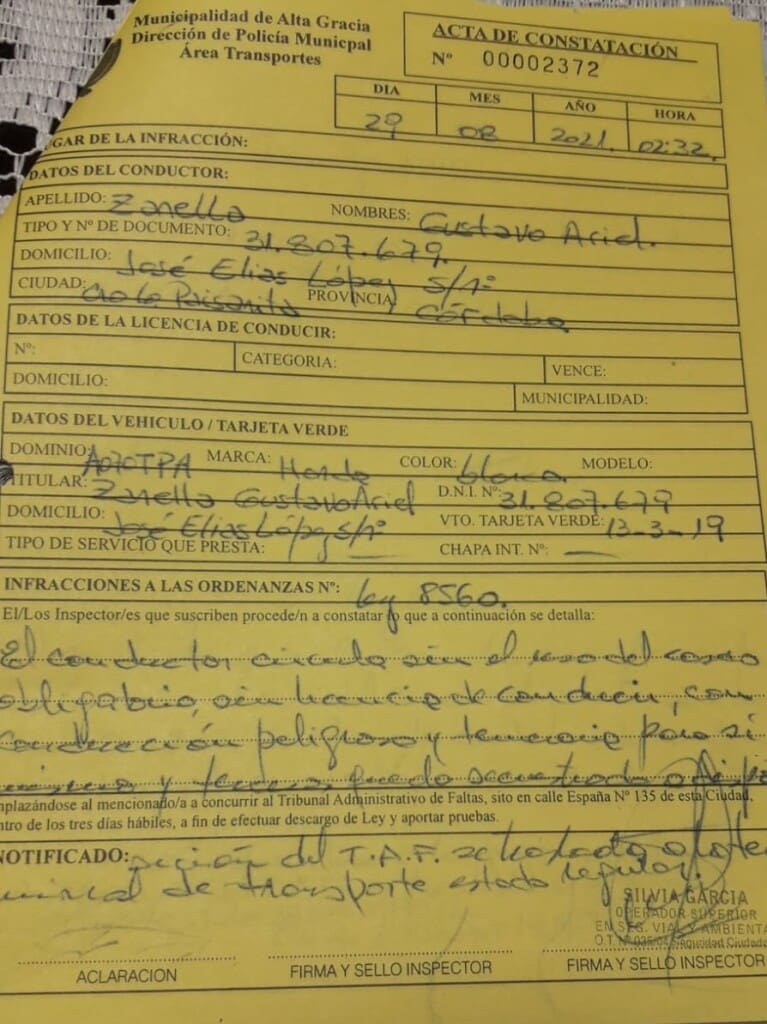 Municipalidad de Alta Gracia
Dirección de Policía Municpal
Área Transportes
ACTA DE CONSTATACIÓN
Nº 00002372
DIA MES AÑO HORA
29 08 2021. 02:32.
UGAR DE LA INFRACCIÓN:
DATOS DEL CONDUCTOR:
APELLIDO: Zanella NOMBRES: Gustavo Ariel.
TIPO Y Nº DE DOCUMENTO: 31.807.679.
DOMICILIO: José Elias López s/nº
CIUDAD: PROVINCIA Córdoba
DATOS DE LA LICENCIA DE CONDUCIR:
Nº: CATEGORIA: VENCE:
DOMICILIO: MUNICIPALIDAD:
DATOS DEL VEHICULO / TARJETA VERDE
DOMINIO: A070TPA MARCA: Honda COLOR: blanca. MODELO:
TITULAR: Zanella Gustavo Ariel D.N.I. Nº: 31.807.679
DOMICILIO: José Elias López s/nº VTO. TARJETA VERDE: 13-3-19
TIPO DE SERVICIO QUE PRESTA: — CHAPA INT. Nº: —
INFRACCIONES A LAS ORDENANZAS Nº: ley 8560.
El/Los Inspector/es que suscriben procede/n a constatar lo que a continuación se detalla:
El conductor circula sin el uso del casco
obligatorio, sin licencia de conducir, con
conducción peligrosa y temeraria para si
misma y terceros, queda secuestrado a dispo
mplazándose al mencionado/a a concurrir al Tribunal Administrativo de Faltas, sito en calle España Nº 135 de esta Ciudad,
ntro de los tres días hábiles, a fin de efectuar descargo de Ley y aportar pruebas.
NOTIFICADO: sición del T.A.F. se traslada
de transporte estado regular.
SILVIA GARCIA
OPERADOR SUPERIOR
EN SEG. VIAL Y AMBIENTA
Seguridad Ciudada
ACLARACION FIRMA Y SELLO INSPECTOR FIRMA Y SELLO INSPECTOR